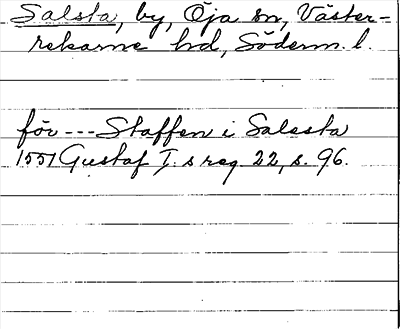 Salsta, by, Öja sn, Väster-
rekarne hd, Söderm. l.
för --- Staffen i Salesta
1551 Gustaf I:s reg. 22, s. 96.